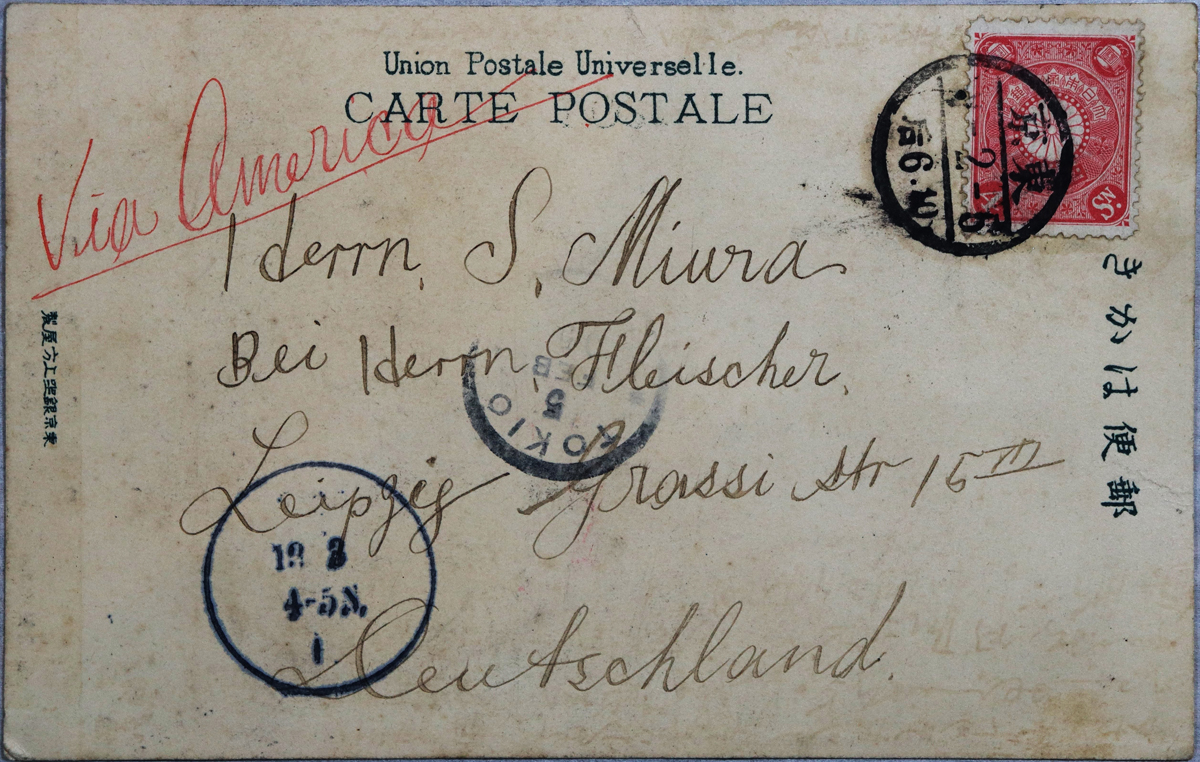 Union Postale Universelle.
CARTE POSTALE
Via America
Herrn, S. Miura
Bei Herrn, Fleischer,
Leipzig Grassi Str 15 III
Deutschland.
郵便はかき
東京銀座上方屋製
東京
2-6
后6.10
TOKIO
5
FEB
19 3
4-5 N.
1